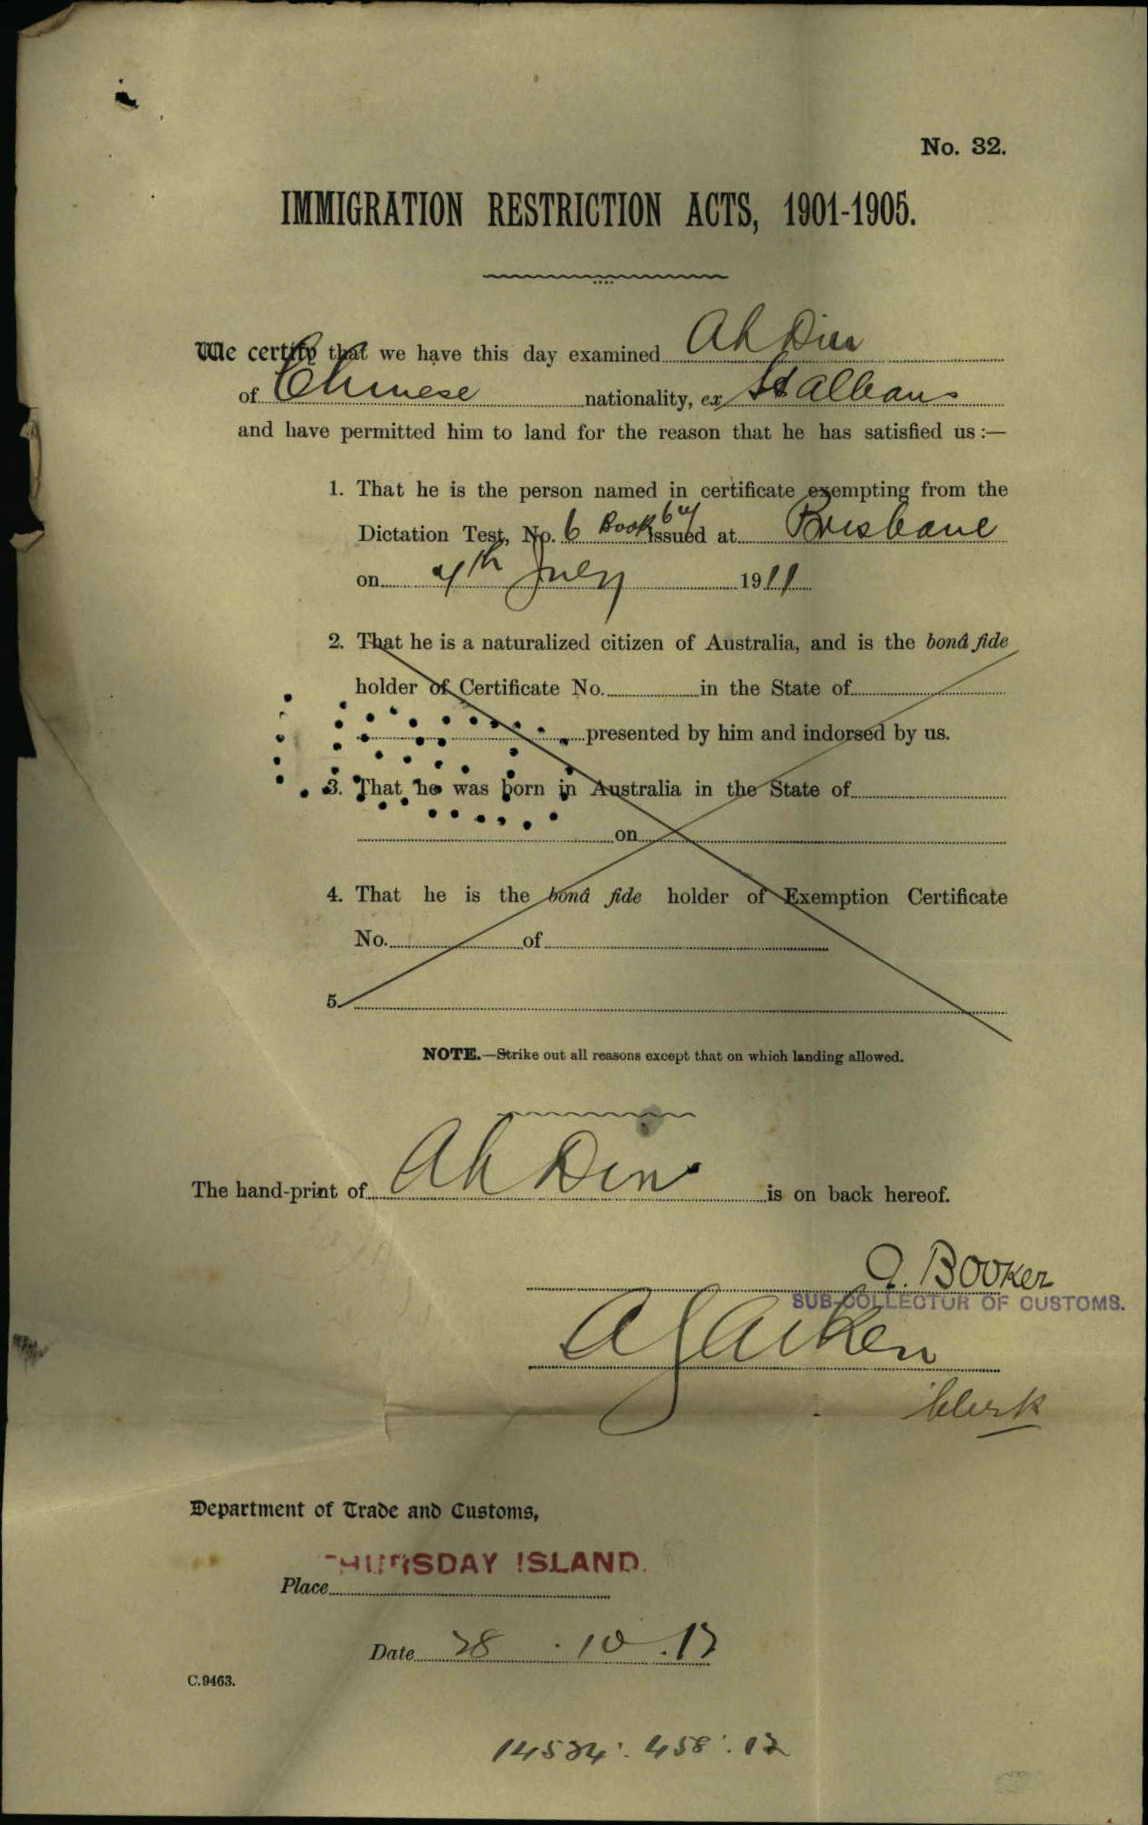 No. 32.
IMMIGRATION RESTRICTION ACTS, 1901-1905.
We certify that we have this day examined Ah Din
of Chinese nationality, ex St Albans
and have permitted him to land for the reason that he has satisfied us :—
1. That he is the person named in certificate exempting from the
Dictation Test, No. 6 Book 64 issued at Brisbane
on 4th July 1911
2. That he is a naturalized citizen of Australia, and is the bonâ fide
holder of Certificate No. in the State of
presented by him and indorsed by us.
3. That he was born in Australia in the State of
on
4. That he is the bonâ fide holder of Exemption Certificate
No. of
5.
NOTE.—Strike out all reasons except that on which landing allowed.
The hand-print of Ah Din is on back hereof.
Booker
SUB-COLLECTOR OF CUSTOMS.
Aitken
Clerk
Department of Trade and Customs,
Place THURSDAY ISLAND.
Date 28.10.12
C.9463.
458.12